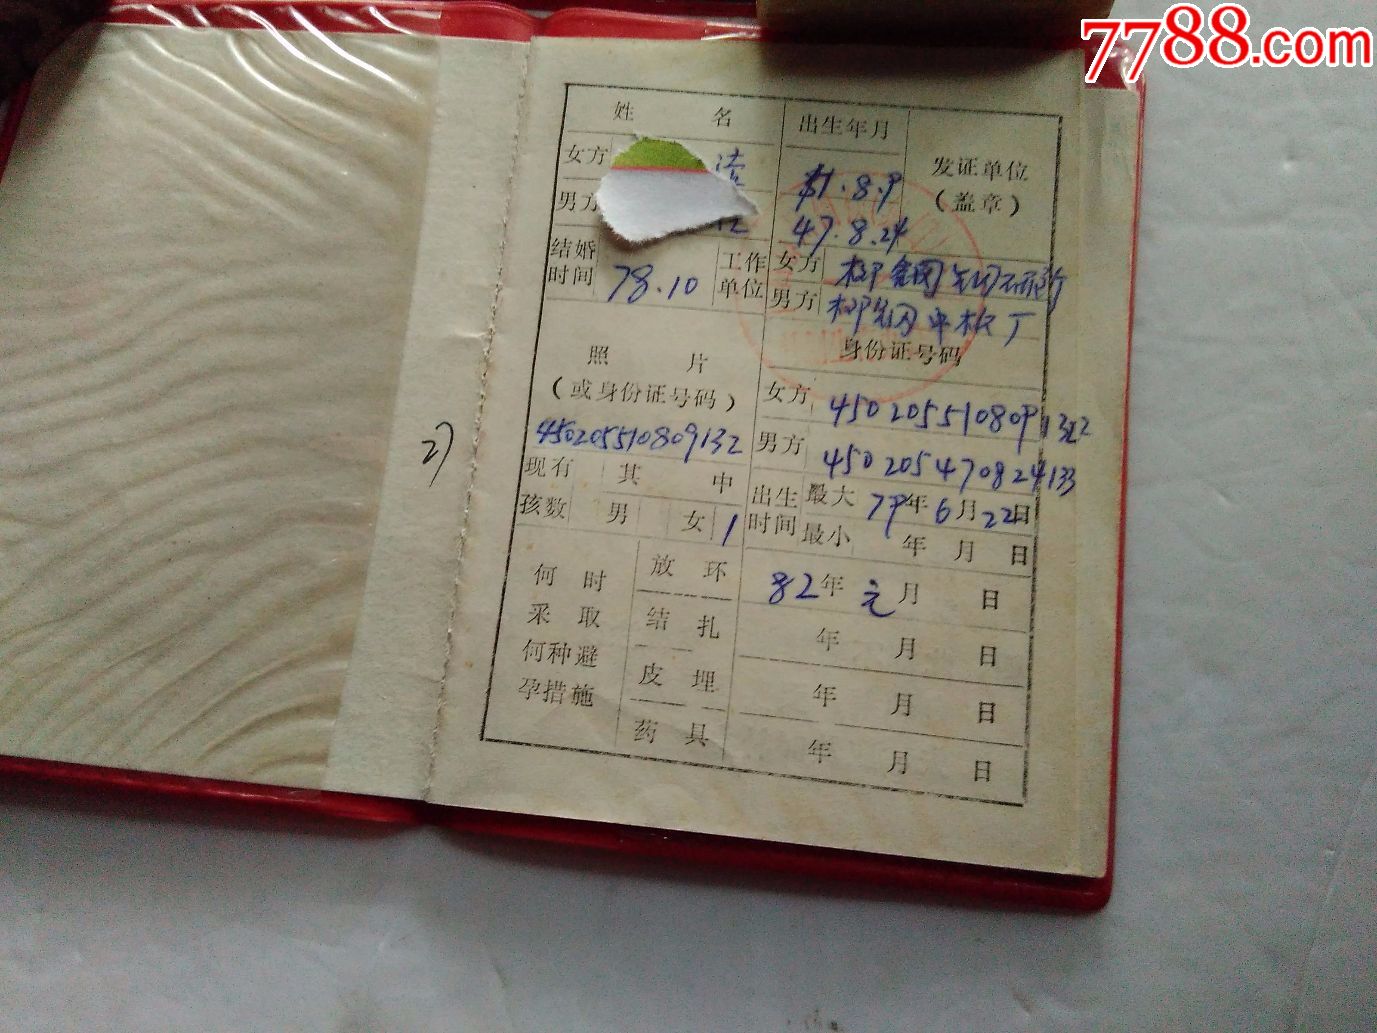 7788.com
姓 名 出生年月 发证单位
(盖章)
女方 51.8.9
男方 47.8.24
结婚时间 78.10 工作单位 女方
男方 柳钢中板厂
照 片 身份证号码
(或身份证号码) 女方 450205510809132
450205510809132 男方 450205470824133
现有孩数 其 中 出生时间 最大 79年6月22日
男 女 1 最小 年 月 日
何时采取何种避孕措施 放环 82年元月 日
结扎 年 月 日
皮埋 年 月 日
药具 年 月 日
2)